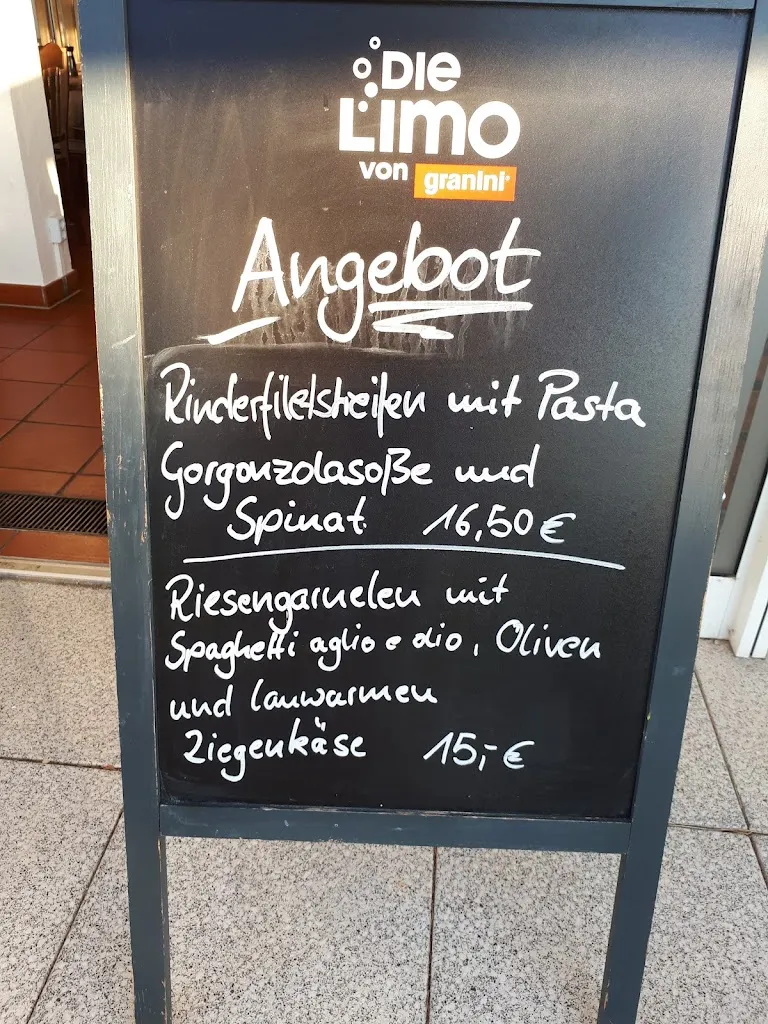 DIE
LIMO
von granini
Angebot
Rinderfiletstreifen mit Pasta
Gorgonzolasoße und
Spinat 16,50 €
Riesengarnelen mit
Spaghetti aglio e olio, Oliven
und lauwarmen
Ziegenkäse 15,- €